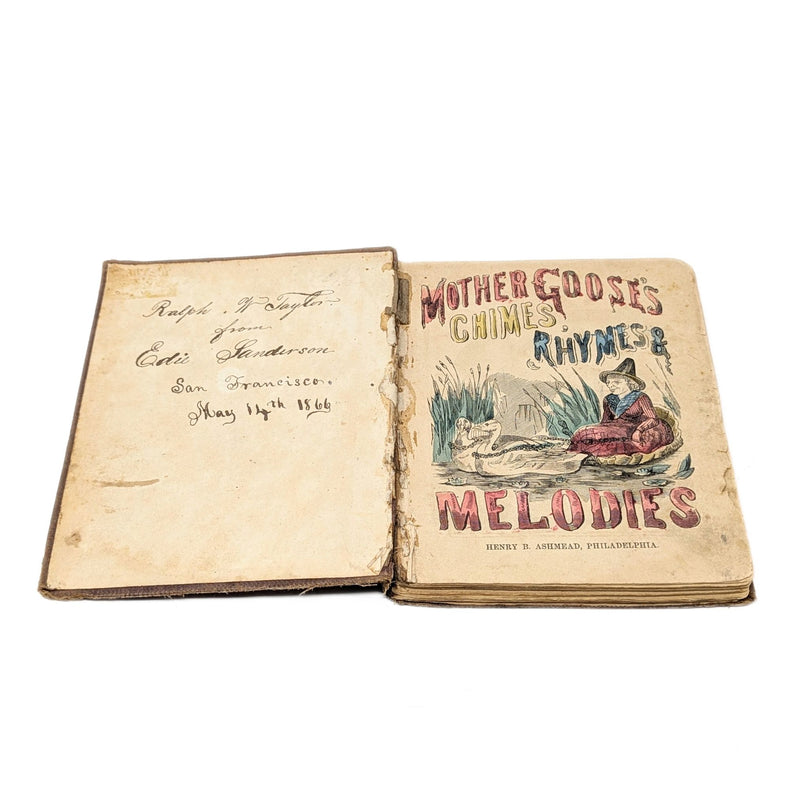 Ralph W Taylor
from
Edie Sanderson
San Francisco.
May 14th 1866
MOTHER GOOSE'S
CHIMES,
RHYMES &
MELODIES
HENRY B. ASHMEAD, PHILADELPHIA.